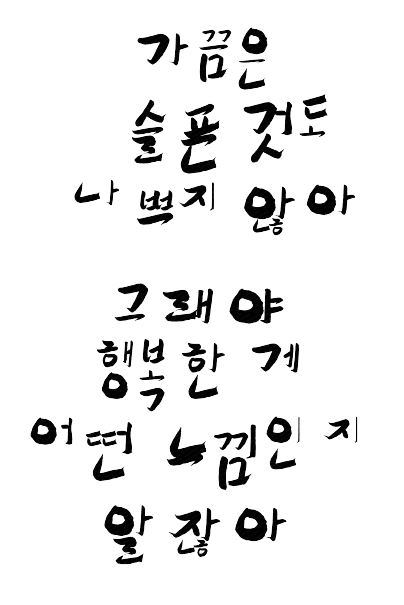 가끔은
슬픈 것도
나쁘지 않아
그래야
행복한 게
어떤 느낌인지
알잖아